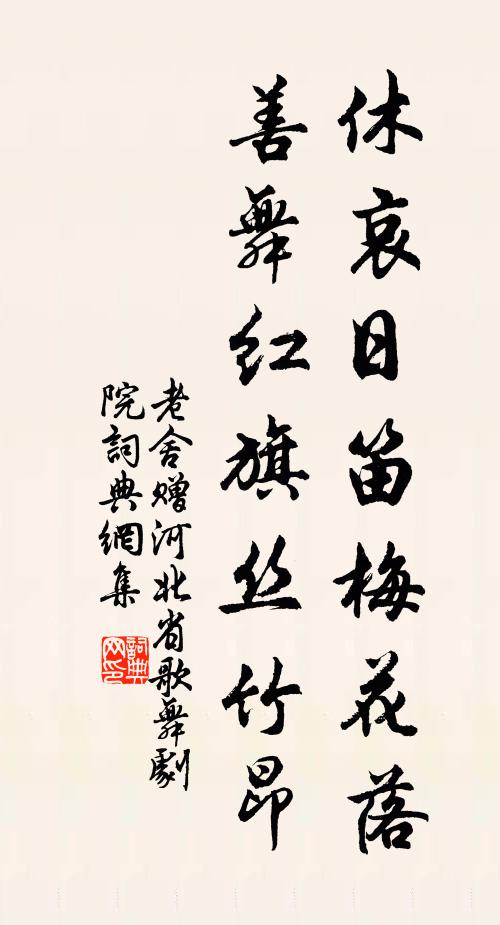 休哀日笛梅花落
善舞红旗丝竹昂
老舍赠河北省歌舞剧
院詞典網集
詞典網印